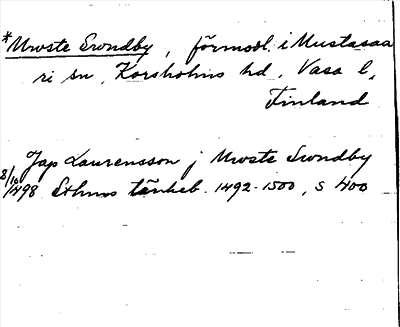 *Mwste Swndby, förmodl. i Mustasaa
ri sn, Korsholms hd, Vasa l,
Finland
Jap Laurensson j Mwste Swndby
8/10 1498 Sthms tänkeb. 1492-1500, s 400